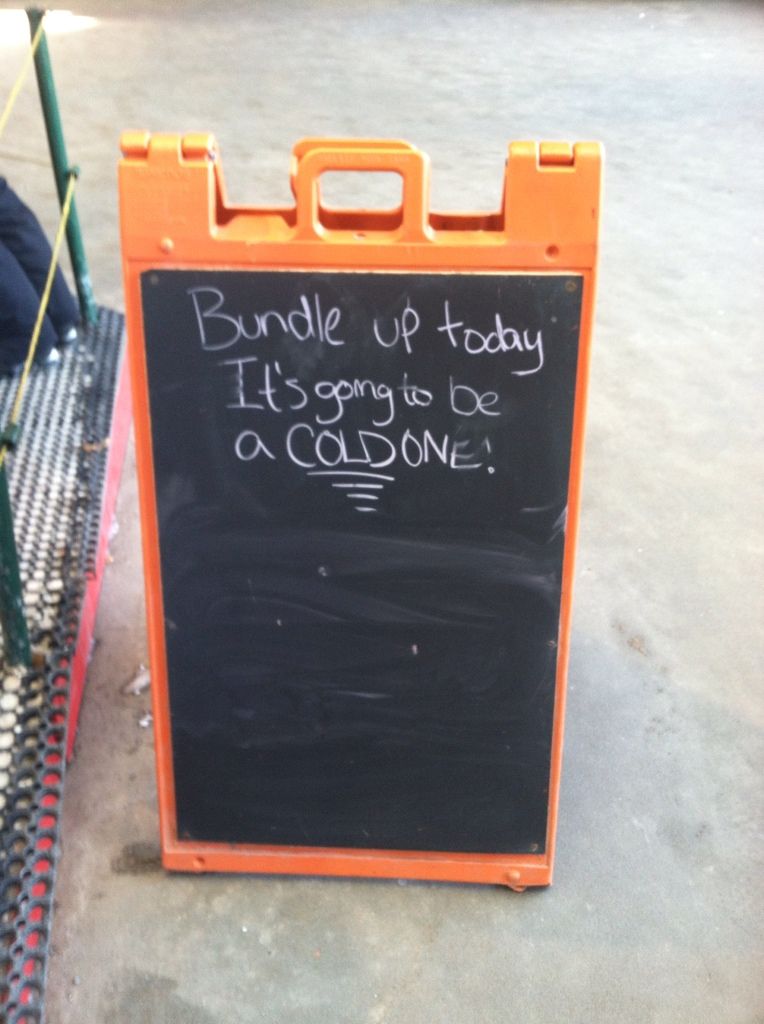 Bundle up today
It's going to be
a COLD ONE!